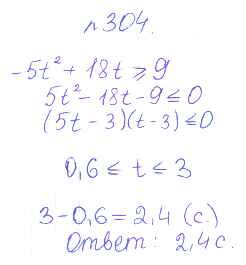 №304.
-5t² + 18t ⩾ 9
5t² - 18t - 9 ≤ 0
(5t - 3)(t - 3) ≤ 0
0,6 ≤ t ≤ 3
3 - 0,6 = 2,4 (с.)
Ответ: 2,4 с.